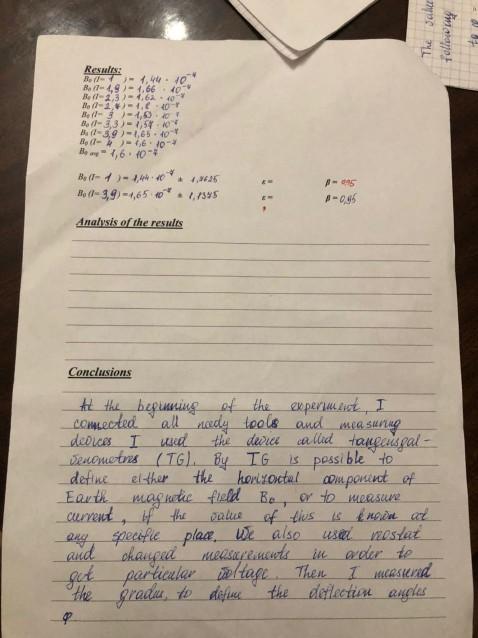 Results:
B₀ (I= 1 ) = 1,44 · 10⁻⁴
B₀ (I= 1,9 ) = 1,66 · 10⁻⁴
B₀ (I= 2,3 ) = 1,62 · 10⁻⁴
B₀ (I= 2,7 ) = 1,6 · 10⁻⁴
B₀ (I= 3 ) = 1,63 · 10⁻⁴
B₀ (I= 3,3 ) = 1,57 · 10⁻⁴
B₀ (I= 3,9 ) = 1,65 · 10⁻⁴
B₀ (I= 4 ) = 1,6 · 10⁻⁴
B₀ avg = 1,6 · 10⁻⁴
B₀ (I= 1 ) = 1,44 · 10⁻⁴ ± ε = β = 0,95
B₀ (I= 3,9 ) = 1,65 · 10⁻⁴ ± 1,1375 ε = β = 0,95
?
Analysis of the results
Conclusions
At the beginning of the experiment, I
connected all needy tools and measuring
devices I used the device called tangensgal-
venometres (TG). By TG is possible to
define either the horizontal component of
Earth magnetic field B₀, or to measure
current, if the value of this is known at
any specific place. We also used reostat
and changed measurements in order to
get particular voltage. Then I measured
the gradus, to define the deflection angles
φ.
The value
following